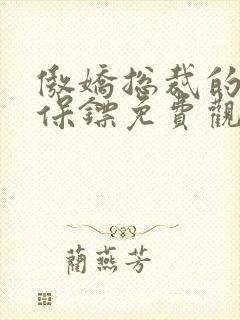 傲嬌總裁的
保鏢免費觀
蘭燕芳